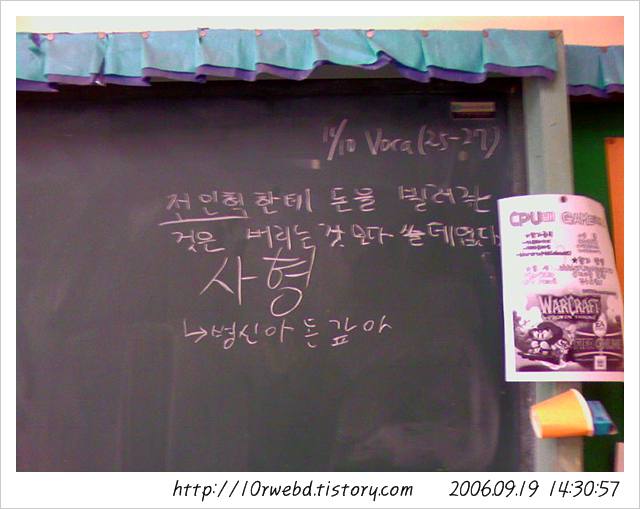 14/10 Voca (25-27)
전인혁한테 돈을 빌려주는
것은 버리는 것보다 쓸데없다.
사형
↳병신아 돈 갚아
CPU배 GAME
WARCRAFT
FROZEN THRONE
http://10rwebd.tistory.com 2006.09.19 14:30:57